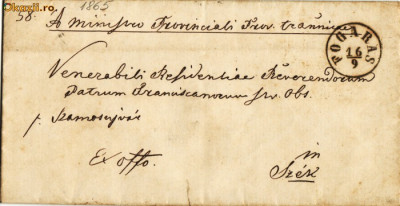 Okazii.ro
1865
58. A Ministro Provinciali Prov. Trannicae
FOGARAS
16
9
Venerabili Residentiae Reverendorum
Patrum Franciscanorum str. Obs.
p. Szamosujvár
in
Ex offo.
Szék